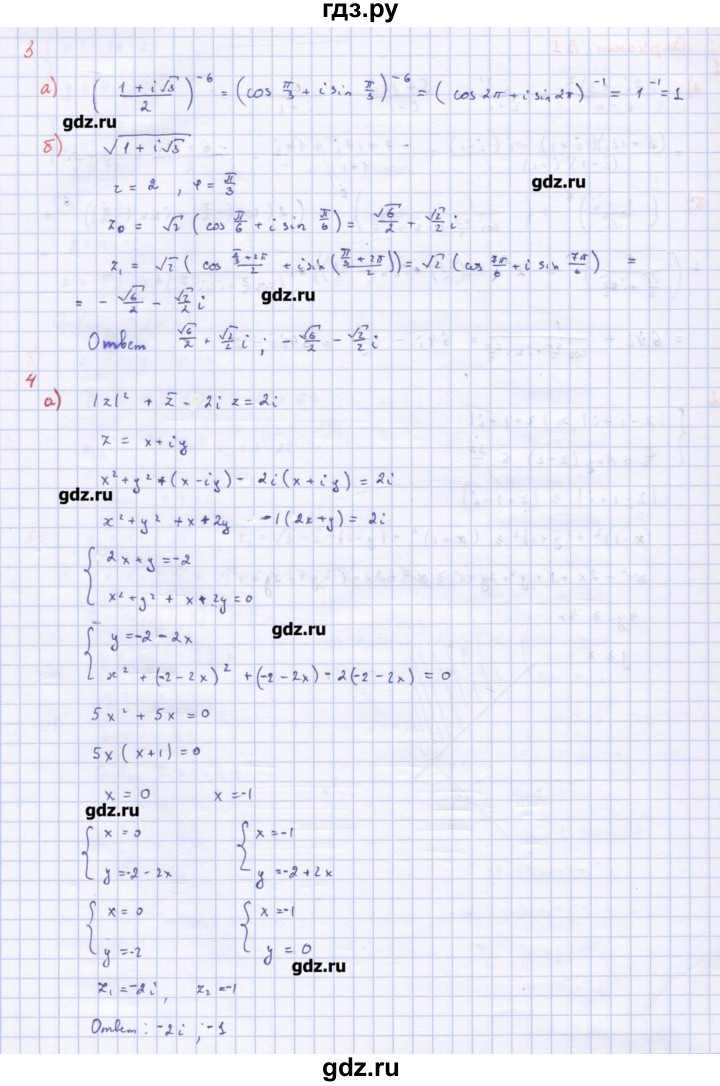 гдз.ру
3
а) ( (1 + i√3)/2 )^-6 = ( cos π/3 + i sin π/3 )^-6 = ( cos 2π + i sin 2π )^-1 = 1^-1 = 1
gdz.ru
б) √(1 + i√3)
gdz.ru
r = 2 , φ = π/3
z₀ = √2 ( cos π/6 + i sin π/6 ) = √6/2 + √2/2 i
z₁ = √2 ( cos (π/3 + 2π)/2 + i sin ( (π/3 + 2π)/2 )) = √2 ( cos 7π/6 + i sin 7π/6 ) =
= - √6/2 - √2/2 i
gdz.ru
Ответ √6/2 + √2/2 i ; - √6/2 - √2/2 i
4
а) |z|² + z̄ - 2i z = 2i
z = x + iy
x² + y² + (x - iy) - 2i (x + iy) = 2i
gdz.ru
x² + y² + x + 2y - i (2x + y) = 2i
{ 2x + y = -2
x² + y² + x + 2y = 0
gdz.ru
{ y = -2 - 2x
x² + (-2 - 2x)² + (-2 - 2x) - 2(-2 - 2x) = 0
5x² + 5x = 0
5x ( x + 1) = 0
x = 0 x = -1
gdz.ru
{ x = 0 { x = -1
y = -2 - 2x y = -2 + 2x
{ x = 0 { x = -1
y = -2 y = 0
gdz.ru
z₁ = -2i , z₂ = -1
Ответ : -2i ; -1
gdz.ru